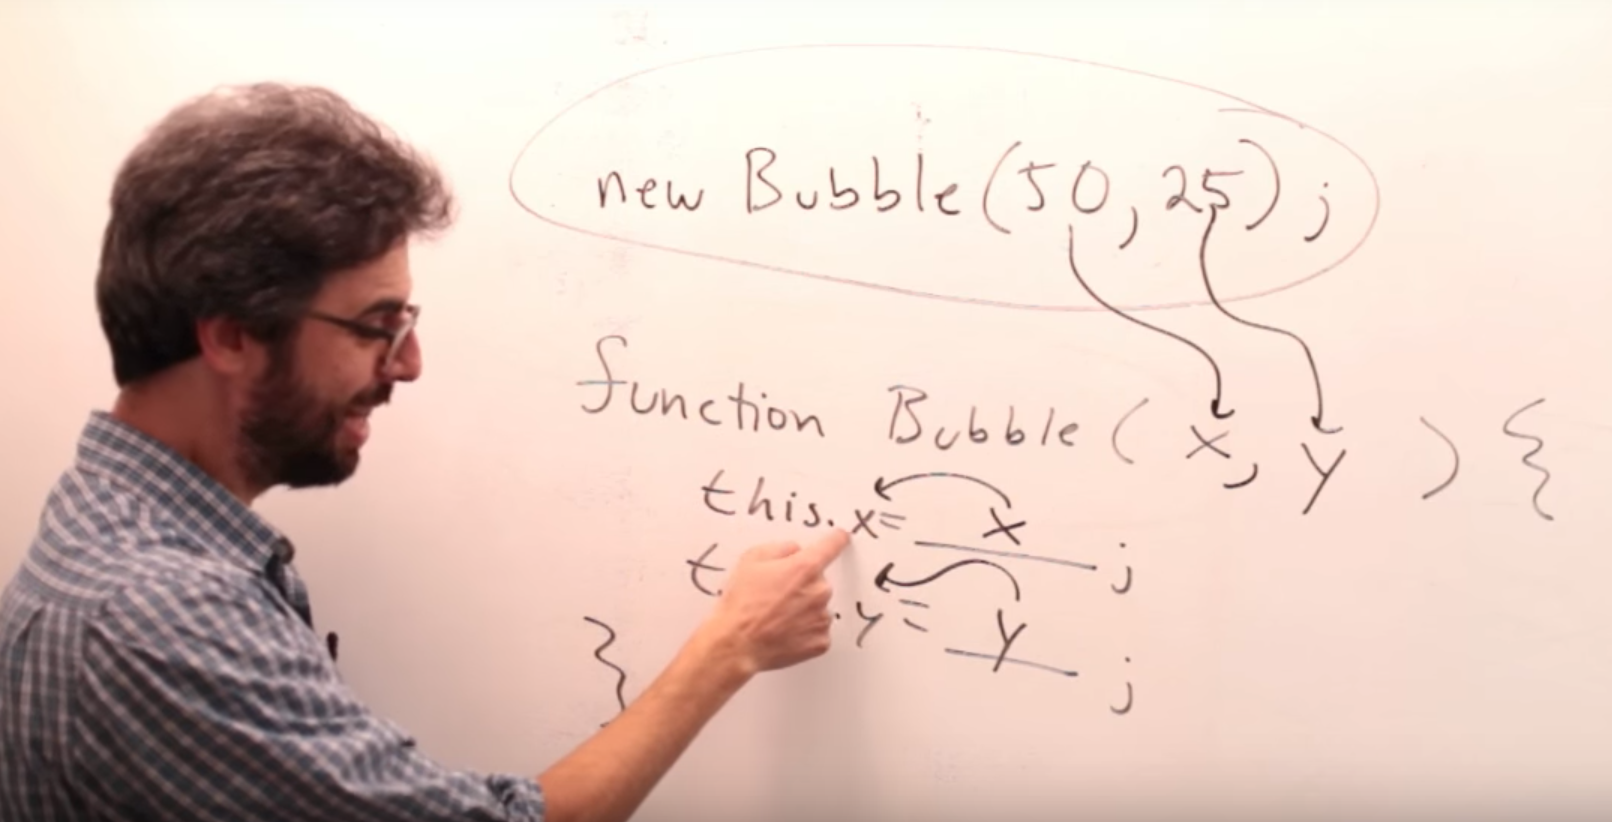 new Bubble(50,25);
function Bubble( x, y ) {
this.x= x ;
t .y= y ;
}